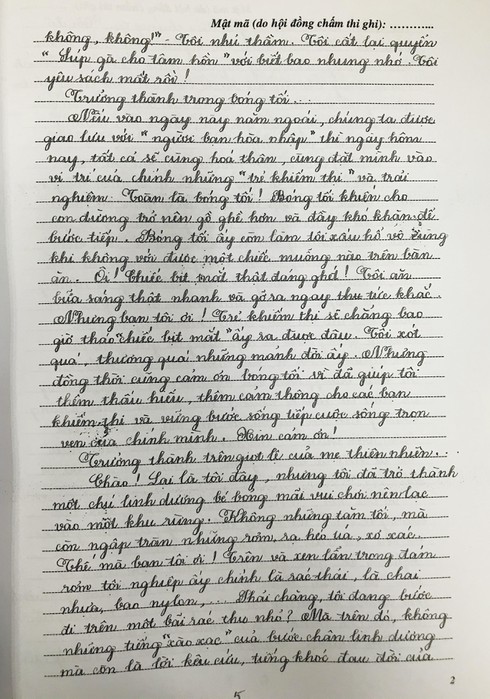 Mật mã (do hội đồng chấm thi ghi): ............
không, không!" - Tôi nhủ thầm. Tôi cất lại quyển
"Súp gà cho tâm hồn" với biết bao nhung nhớ. Tôi
yêu sách mất rồi!
Trưởng thành trong bóng tối...
Nếu vào ngày này năm ngoái, chúng ta được
giao lưu với "người bạn hòa nhập" thì ngày hôm
nay, tất cả sẽ cùng hoá thân, cùng đặt mình vào
vị trí của chính những "trẻ khiếm thị" và trải
nghiệm. Toàn là bóng tối! Bóng tối khiến cho
con đường trở nên gồ ghề hơn và đầy khó khăn để
bước tiếp. Bóng tối ấy còn làm tôi xấu hổ vô cùng
khi không với được một chiếc muỗng nào trên bàn
ăn. Ôi! Chiếc bịt mắt thật đáng ghét! Tôi ăn
bữa sáng thật nhanh và gỡ ra ngay thu tức khắc.
Nhưng bạn tôi ơi! Trẻ khiếm thị sẽ chẳng bao
giờ tháo "chiếc bịt mắt" ấy ra được đâu. Tôi xót
quá, thương quá những mảnh đời ấy. Nhưng
đồng thời cũng cảm ơn "bóng tối" vì đã giúp tôi
thêm thấu hiểu, thêm cảm thông cho các bạn
khiếm thị và vững bước sống tiếp cuộc sống trọn
vẹn của chính mình. Xin cảm ơn!
Trưởng thành trên giọt lệ của mẹ thiên nhiên...
Chào! Lại là tôi đây, nhưng tôi đã trở thành
một chú linh dương bé bỏng mải vui chơi nên lạc
vào một khu rừng. Không những tăm tối, mà
còn ngập tràn những rơm, rạ héo úa, xơ xác.
Thế mà bạn tôi ơi! Trên và xen lẫn trong đám
rơm tội nghiệp ấy chính là rác thải, là chai
nhựa, bao nylon,... Phải chăng, tôi đang bước
đi trên một bãi rác thu nhỏ? Mà trên đó, không
những tiếng "xào xạc" của bước chân linh dương
mà còn là lời kêu cứu, tiếng khóc đau đời của
2